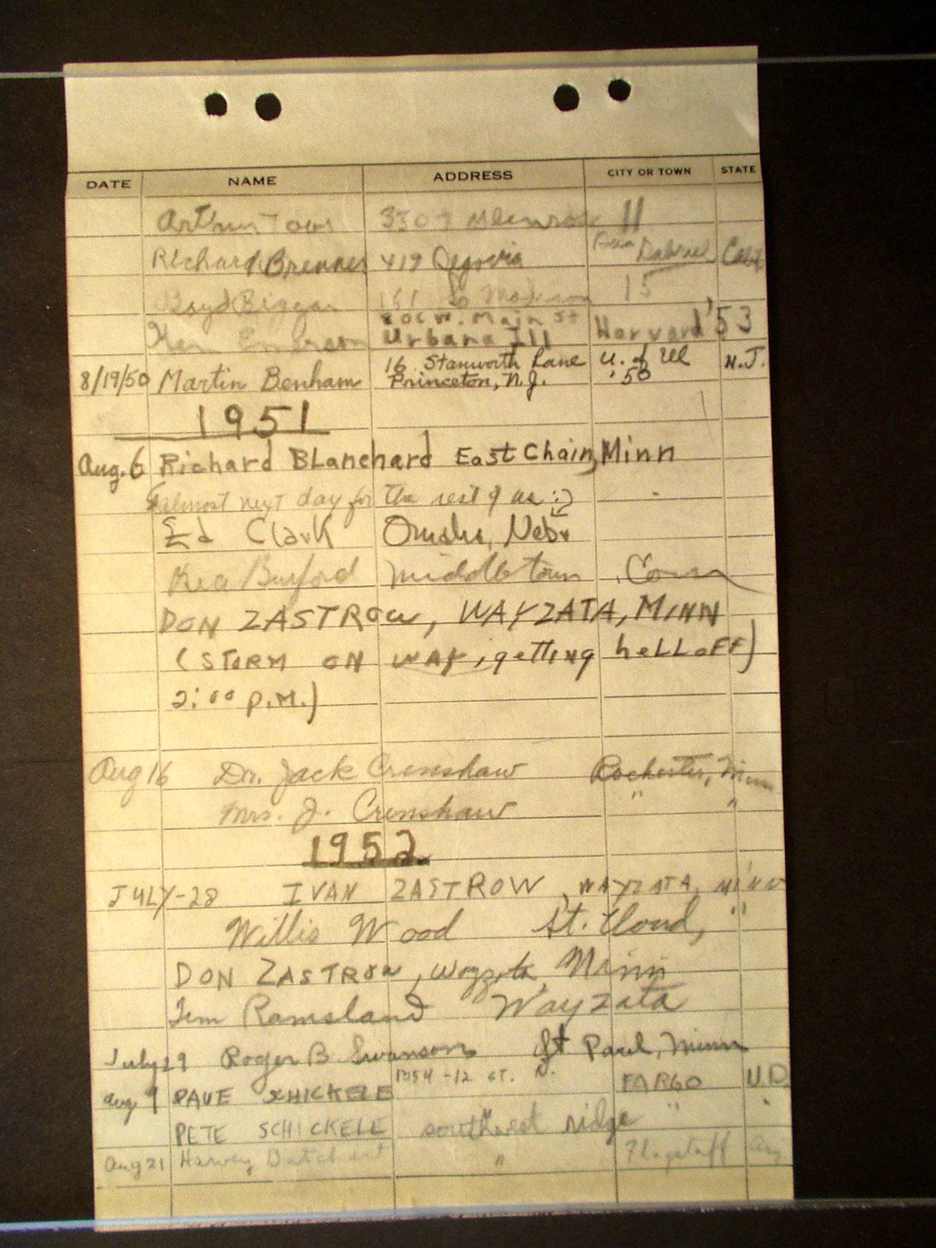 DATE NAME ADDRESS CITY OR TOWN STATE
Arthur 3307 11
Richard Brenner 419 Segovia San Gabriel Calif
Boyd 161 Madison 15
806 W. Main St
Ken Emerson Urbana Ill Harvard '53
16 Stanworth Lane U. of Ill N.J.
8/19/50 Martin Benham Princeton, N.J. '50
1951
Aug. 6 Richard Blanchard East Chain, Minn
almost next day for the rest of us :)
Ed Clark Omaha, Nebr
Burford Middletown, Conn
DON ZASTROW, WAYZATA, MINN
(STORM ON WAY, getting hell OFF)
2:00 P.M.)
Aug 16 Dr. Jack Crenshaw Rochester, Minn
Mrs. J. Crenshaw " "
1952
JULY-28 IVAN ZASTROW, WAYZATA, MINN
Willis Wood St. Cloud, "
DON ZASTROW, Wayzata, Minn
Jim Ramsland Wayzata
July 29 Roger B Swanson St Paul, Minn
Aug 9 DAVE SCHICKELE 1354-12 ST. N. FARGO N.D.
PETE SCHICKELE " "
southwest ridge
Aug 21 Harvey Butchart " Flagstaff Ariz